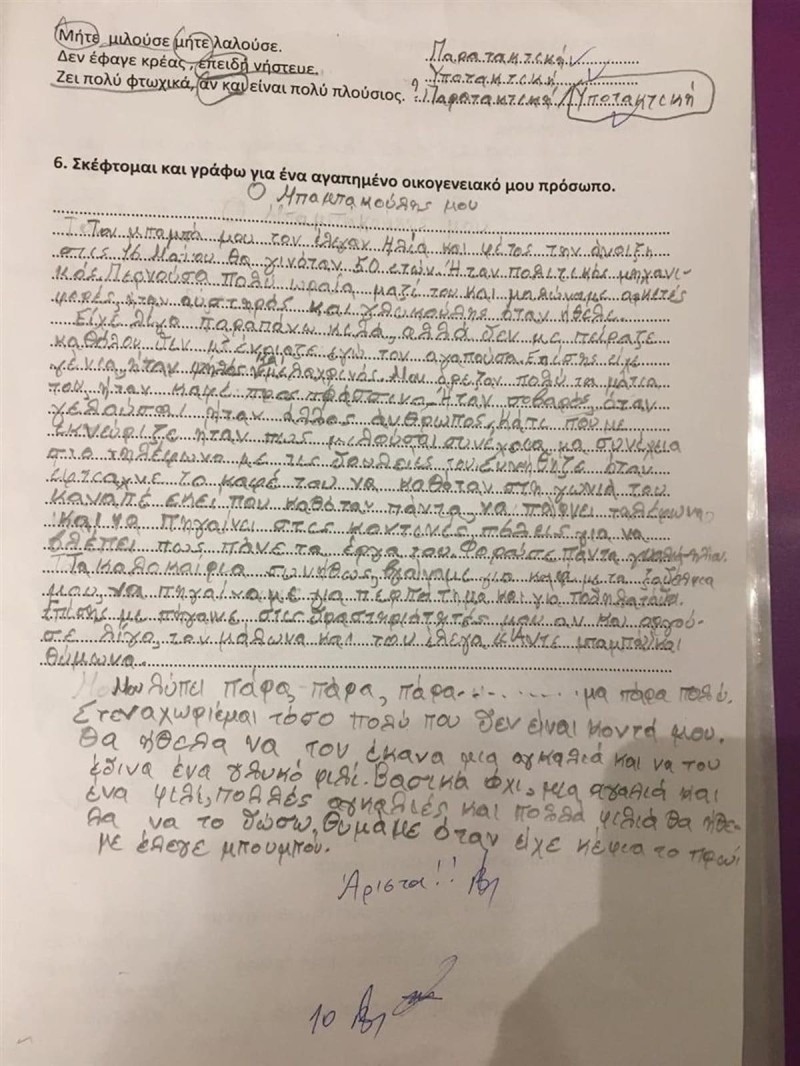 Μήτε μιλούσε μήτε λαλούσε. Παρατακτική
Δεν έφαγε κρέας, επειδή νήστευε. Υποτακτική
Ζει πολύ φτωχικά, αν και είναι πολύ πλούσιος. ? Παρατακτική / Υποτακτική
6. Σκέφτομαι και γράφω για ένα αγαπημένο οικογενειακό μου πρόσωπο.
Ο Μπαμπακούλης μου
Τον μπαμπά μου τον έλεγαν Ηλία και φέτος την άνοιξη
στις 16 Μαΐου θα γινόταν 50 ετών. Ήταν πολιτικός μηχανι-
κός. Περνούσα πολύ ωραία μαζί του και μαλώναμε αρκετές
φορές, ήταν αυστηρός και γλυκούλης όταν ήθελε.
Είχε λίγα παραπάνω κιλά, αλλά δεν με πείραζε
καθόλου δεν μ' ένοιαζε εγώ τον αγαπούσα. Επίσης είχε
γένια, ήταν ψηλός και μελαχρινός. Μου άρεζαν πολύ τα μάτια
του ήταν καφέ προς πράσινο. Ήταν σοβαρός, όταν
γελούσε ήταν άλλος άνθρωπος. Κάτι που με
εκνεύριζε ήταν πως μιλούσαι συνέχεια μα συνέχεια
στο τηλέφωνο με τις δουλειές του. Συνήθιζε όταν
έφτιαχνε το καφέ του να καθόταν στη γωνιά του
καναπέ εκεί που καθόταν πάντα, να παίρνει τηλέφωνα
και να πηγαίνει στις κοντινές πόλεις για να
βλέπει πως πάνε τα έργα του. Φορούσε πάντα γυαλιά ηλίου.
Τα καλοκαίρια συνήθως βγαίναμε για καφέ με τα ξαδέλφια
μου, να πηγαίναμε για περπάτημα και για ποδηλατάδα.
Επίσης με πήγαινε στις δραστηριότητές μου αν και αργού-
σε λίγο, τον μάλωνα και του έλεγα «Άντε μπαμπά» και
θύμωνα.
Μου λύπει πάρα, πάρα, πάρα............ μα πάρα πολύ.
Στεναχωριέμαι τόσο πολύ που δεν είναι κοντά μου.
Θα ήθελα να τον έκανα μια αγκαλιά και να του
έδινα ένα γλυκό φιλί. Βασικά όχι, μια αγαλιά και
ένα φιλί, πολλές αγκαλιές και πολλά φιλιά θα ήθε-
λα να το δώσω. Θυμάμε όταν είχε κέφια το πρωί
με έλεγε μπουμπού.
Άριστα!!
10